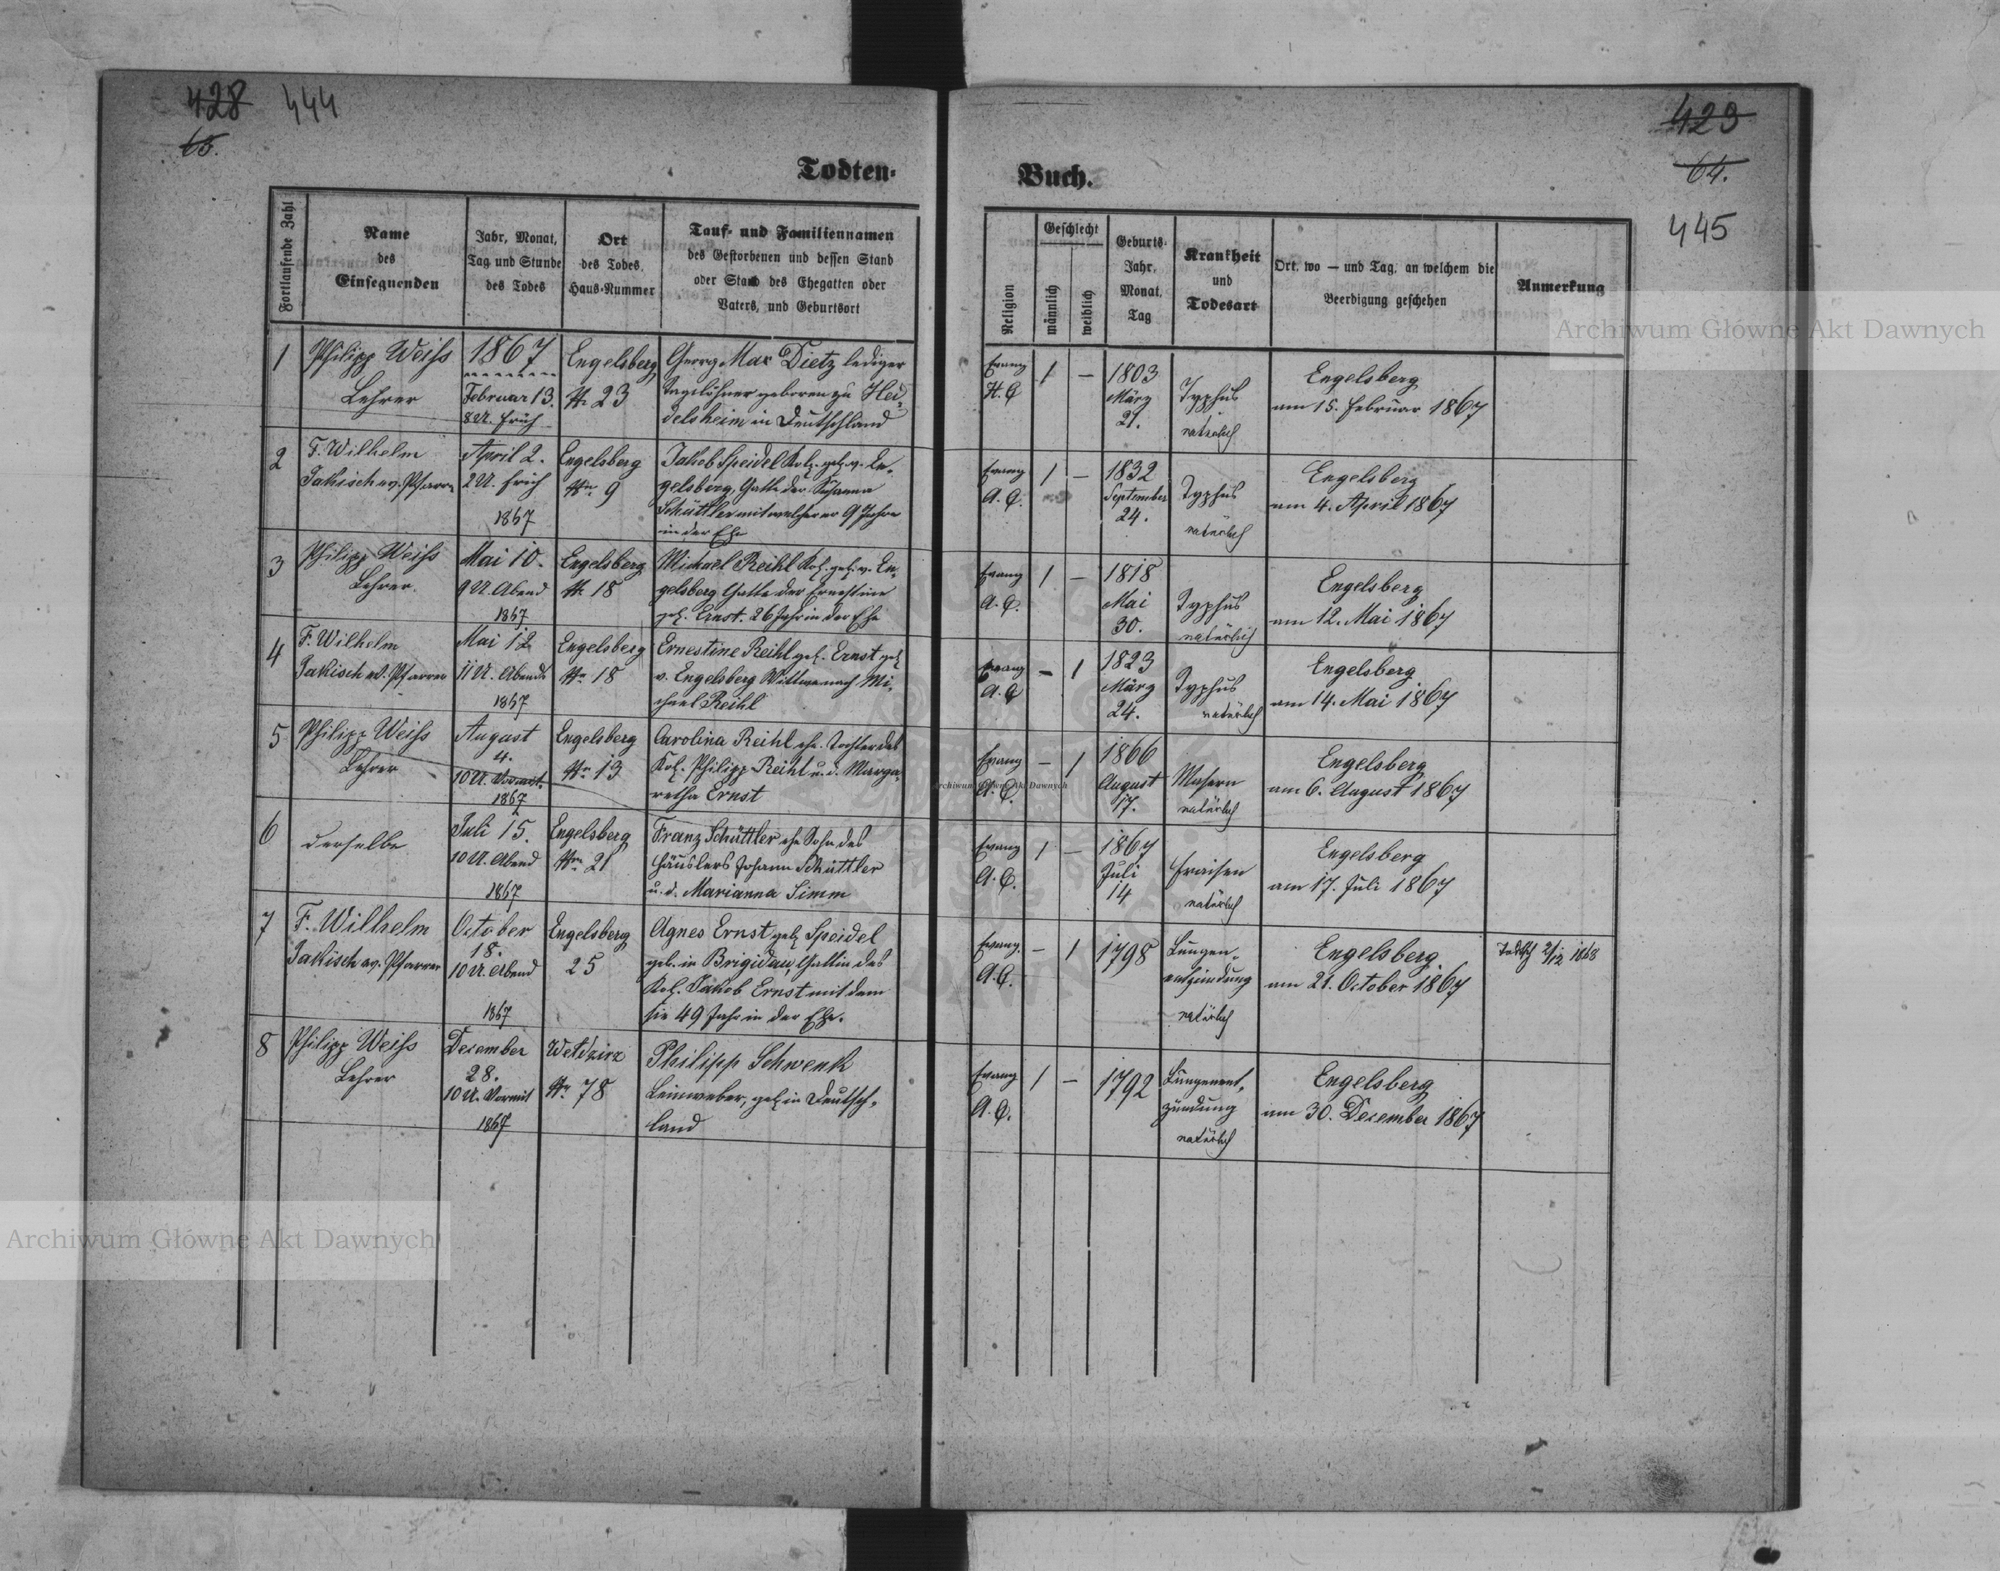 428 444
65.
423
64.
445
Todten-
Buch.
Fortlaufende Zahl
Name
des
Einsegnenden
Jahr, Monat,
Tag und Stunde
des Todes
Ort
des Todes,
Haus-Nummer
Tauf- und Familiennamen
des Gestorbenen und dessen Stand
oder Stand des Ehegatten oder
Vaters, und Geburtsort
Religion
Geschlecht
männlich
weiblich
Geburts-
Jahr,
Monat,
Tag
Krankheit
und
Todesart
Ort, wo — und Tag, an welchem die
Beerdigung geschehen
Anmerkung
1
Philipp Weiss
Lehrer
1867
Februar 13.
8 U. früh
Engelsberg
Nr 23
Georg Max Dietz lediger
Tagelöhner geboren zu Hei-
delsheim in Deutschland
Evang
H. C
1 —
1803
März
21.
Typhus
natürlich
Engelsberg
am 15. Februar 1867
2
F. Wilhelm
Jakisch ev. Pfarrer
April 2.
2 U. früh
1867
Engelsberg
Nro 9
Jakob Speidel Kol. geb. v. En-
gelsberg, Gatte der Susanna
Schüttler mit welcher er 9 Jahre
in der Ehe
Evang
A. C.
1 —
1832
September
24.
Typhus
natürlich
Engelsberg
am 4. April 1867
3
Philipp Weiss
Lehrer.
Mai 10.
9 U. Abend
1867
Engelsberg
Nr 18
Michael Reihl Kol. geb. v. En-
gelsberg Gatte der Ernestine
geb. Ernst. 26 Jahr in der Ehe
Evang
A. C.
1 —
1818
Mai
30.
Typhus
natürlich
Engelsberg
am 12. Mai 1867
4
F. Wilhelm
Jakisch ev. Pfarrer
Mai 12
11 U. Abends
1867
Engelsberg
Nro 18
Ernestine Reihl geb. Ernst geb
v. Engelsberg Wittwe nach Mi-
chael Reihl
Evang
A. C
— 1
1823
März
24.
Typhus
natürlich
Engelsberg
am 14. Mai 1867
5
Philipp Weiss
Lehrer
August
4.
10 U. Vormit.
1867
Engelsberg
Nro 13
Carolina Reihl ehe. Tochter des
Kol. Philipp Reihl u. d. Marga-
retha Ernst
Evang
A. C.
— 1
1866
August
17.
Masern
natürlich
Engelsberg
am 6. August 1867
6
derselbe
Juli 15.
10 U. Abend
1867
Engelsberg
Nro 21
Franz Schüttler ehe Sohn des
Häuslers Johann Schüttler
u. d. Marianna Simm
Evang
A. C.
1 —
1867
Juli
14
Fraisen
natürlich
Engelsberg
am 17. Juli 1867
7
F. Wilhelm
Jakisch ev. Pfarrer
October
18.
10 U. Abend
1867
Engelsberg
25
Agnes Ernst geb Speidel
geb. in Brigidau, Gattin des
Kol. Jakob Ernst mit dem
sie 49 Jahr in der Ehe.
Evang.
A. C.
— 1
1798
Lungen-
entzündung
natürlich
Engelsberg
am 21. October 1867
2/12 1868
8
Philipp Weiss
Lehrer
December
28.
10 U. Vormit
1867
Weldzirz
Nr 78
Philipp Schwenk
Leinweber, geb in Deutsch-
land
Evang
A. C.
1 —
1792
Lungenent-
zündung
natürlich
Engelsberg
am 30. December 1867
Archiwum Główne Akt Dawnych
Archiwum Główne Akt Dawnych
Archiwum Główne Akt Dawnych